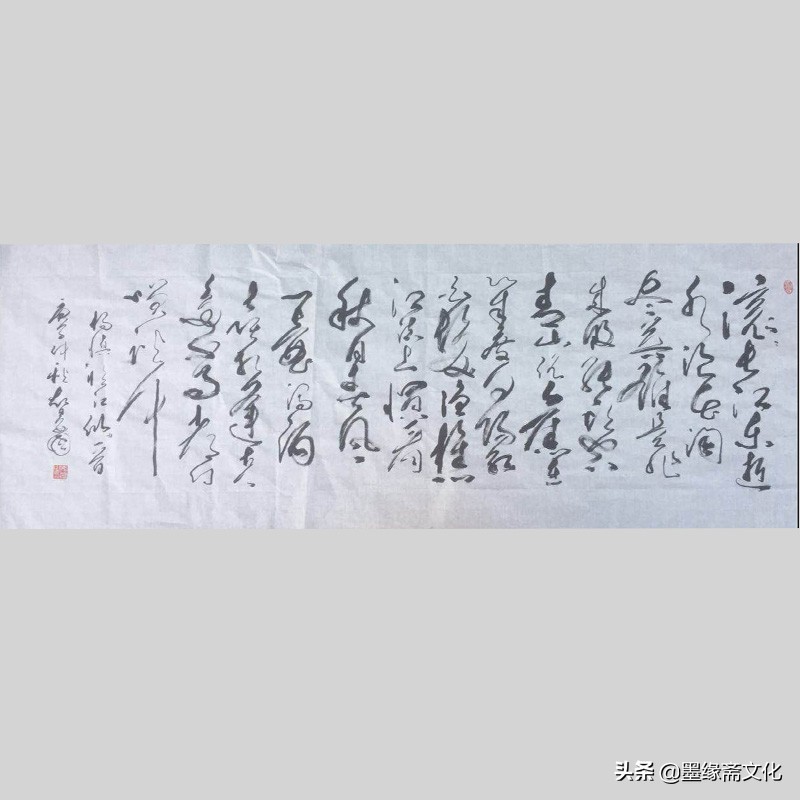 滚滚长江东逝
水浪花淘
尽英雄是非
成败转头空
青山依旧在
几度夕阳红
白发渔樵
江渚上惯看
秋月春风
一壶浊酒
喜相逢古今
多少事都付
笑谈中
杨慎临江仙一首
庚子仲秋
头条 @墨缘斋文化